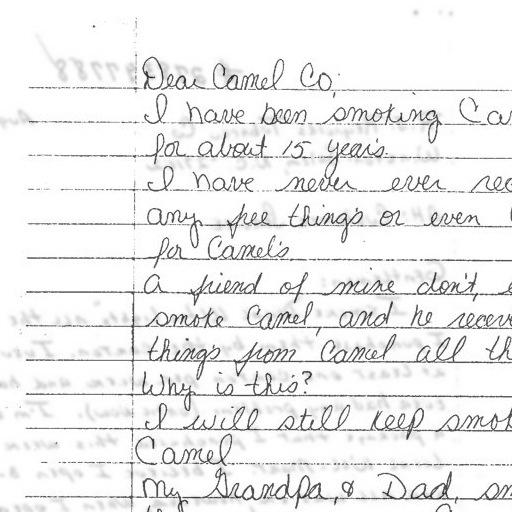 Dear Camel Co,
I have been smoking Ca
for about 15 years.
I have never ever rec
any free things or even
for Camel's.
A friend of mine don't, e
smoke Camel, and he receve
things from Camel all th
Why is this?
I will still keep smok
Camel
My Grandpa, & Dad, sm